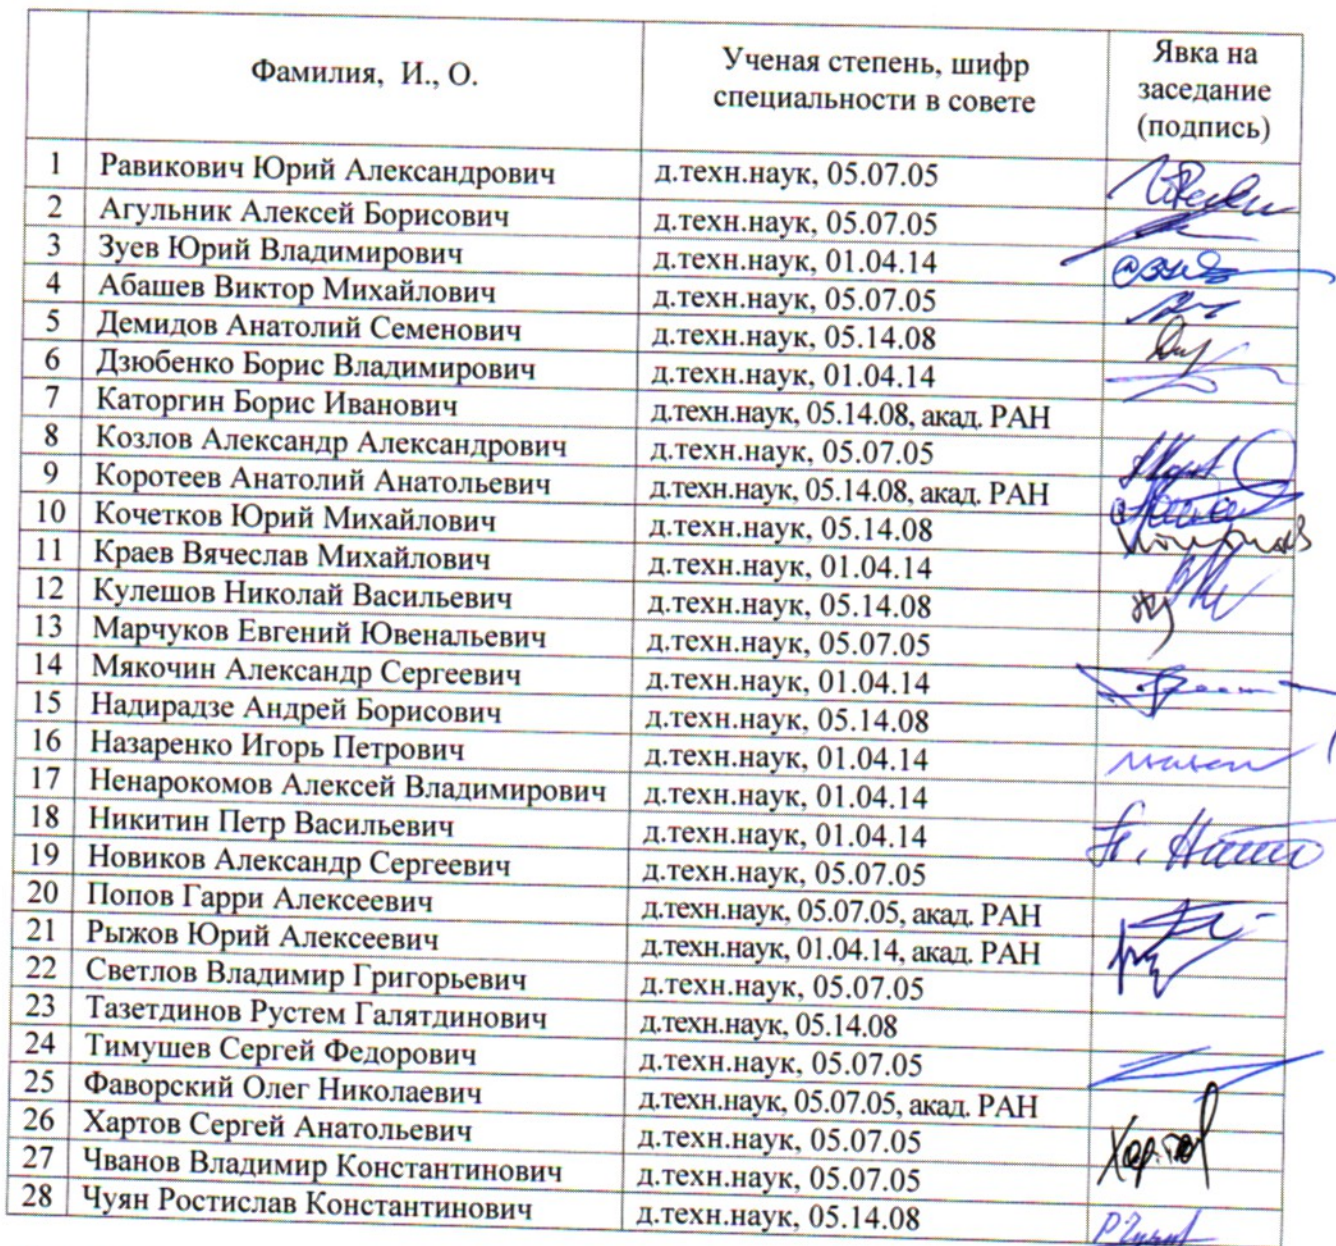 Фамилия, И., О. Ученая степень, шифр Явка на
специальности в совете заседание
(подпись)
1 Равикович Юрий Александрович д.техн.наук, 05.07.05
2 Агульник Алексей Борисович д.техн.наук, 05.07.05
3 Зуев Юрий Владимирович д.техн.наук, 01.04.14
4 Абашев Виктор Михайлович д.техн.наук, 05.07.05
5 Демидов Анатолий Семенович д.техн.наук, 05.14.08
6 Дзюбенко Борис Владимирович д.техн.наук, 01.04.14
7 Каторгин Борис Иванович д.техн.наук, 05.14.08, акад. РАН
8 Козлов Александр Александрович д.техн.наук, 05.07.05
9 Коротеев Анатолий Анатольевич д.техн.наук, 05.14.08, акад. РАН
10 Кочетков Юрий Михайлович д.техн.наук, 05.14.08
11 Краев Вячеслав Михайлович д.техн.наук, 01.04.14
12 Кулешов Николай Васильевич д.техн.наук, 05.14.08
13 Марчуков Евгений Ювенальевич д.техн.наук, 05.07.05
14 Мякочин Александр Сергеевич д.техн.наук, 01.04.14
15 Надирадзе Андрей Борисович д.техн.наук, 05.14.08
16 Назаренко Игорь Петрович д.техн.наук, 01.04.14
17 Ненарокомов Алексей Владимирович д.техн.наук, 01.04.14
18 Никитин Петр Васильевич д.техн.наук, 01.04.14
19 Новиков Александр Сергеевич д.техн.наук, 05.07.05
20 Попов Гарри Алексеевич д.техн.наук, 05.07.05, акад. РАН
21 Рыжов Юрий Алексеевич д.техн.наук, 01.04.14, акад. РАН
22 Светлов Владимир Григорьевич д.техн.наук, 05.07.05
23 Тазетдинов Рустем Галятдинович д.техн.наук, 05.14.08
24 Тимушев Сергей Федорович д.техн.наук, 05.07.05
25 Фаворский Олег Николаевич д.техн.наук, 05.07.05, акад. РАН
26 Хартов Сергей Анатольевич д.техн.наук, 05.07.05
27 Чванов Владимир Константинович д.техн.наук, 05.07.05
28 Чуян Ростислав Константинович д.техн.наук, 05.14.08